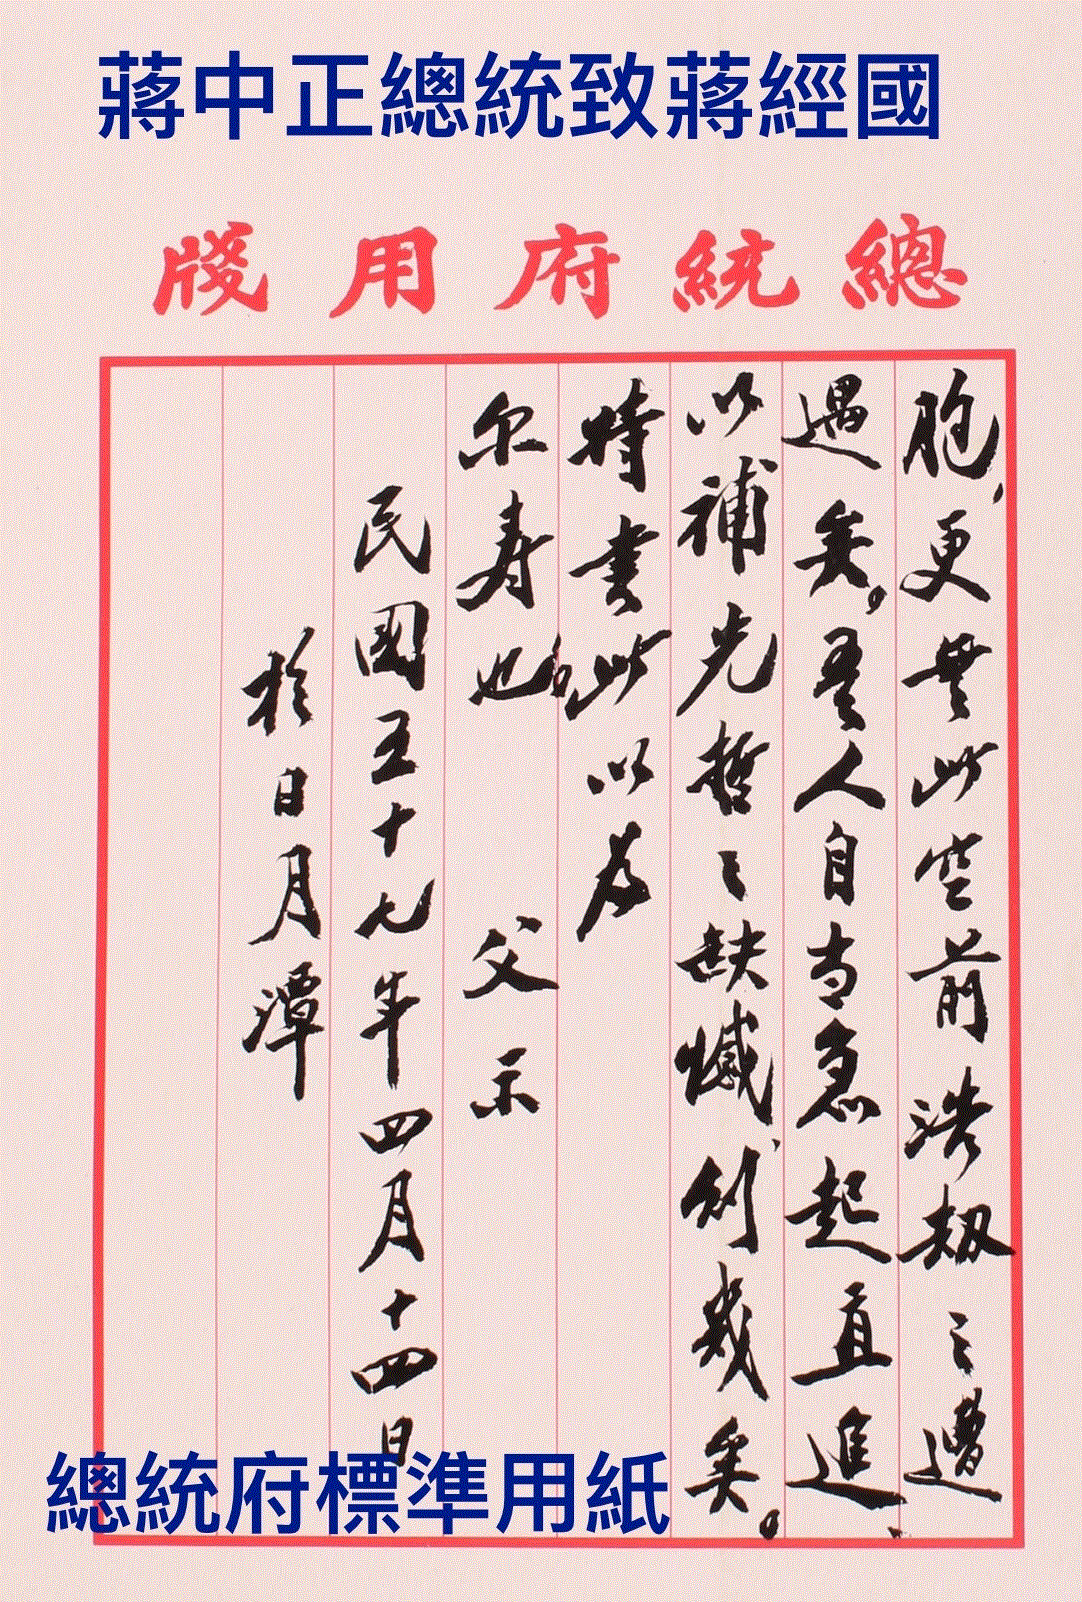 蔣中正總統致蔣經國
總統府用牋
胞，更無此空前浩劫之遭
遇矣。吾人自當急起直進、
以補先哲之缺憾，則幾矣。
特書此以為
尔壽也。 父示
民國五十九年四月十四日
於日月潭
總統府標準用紙